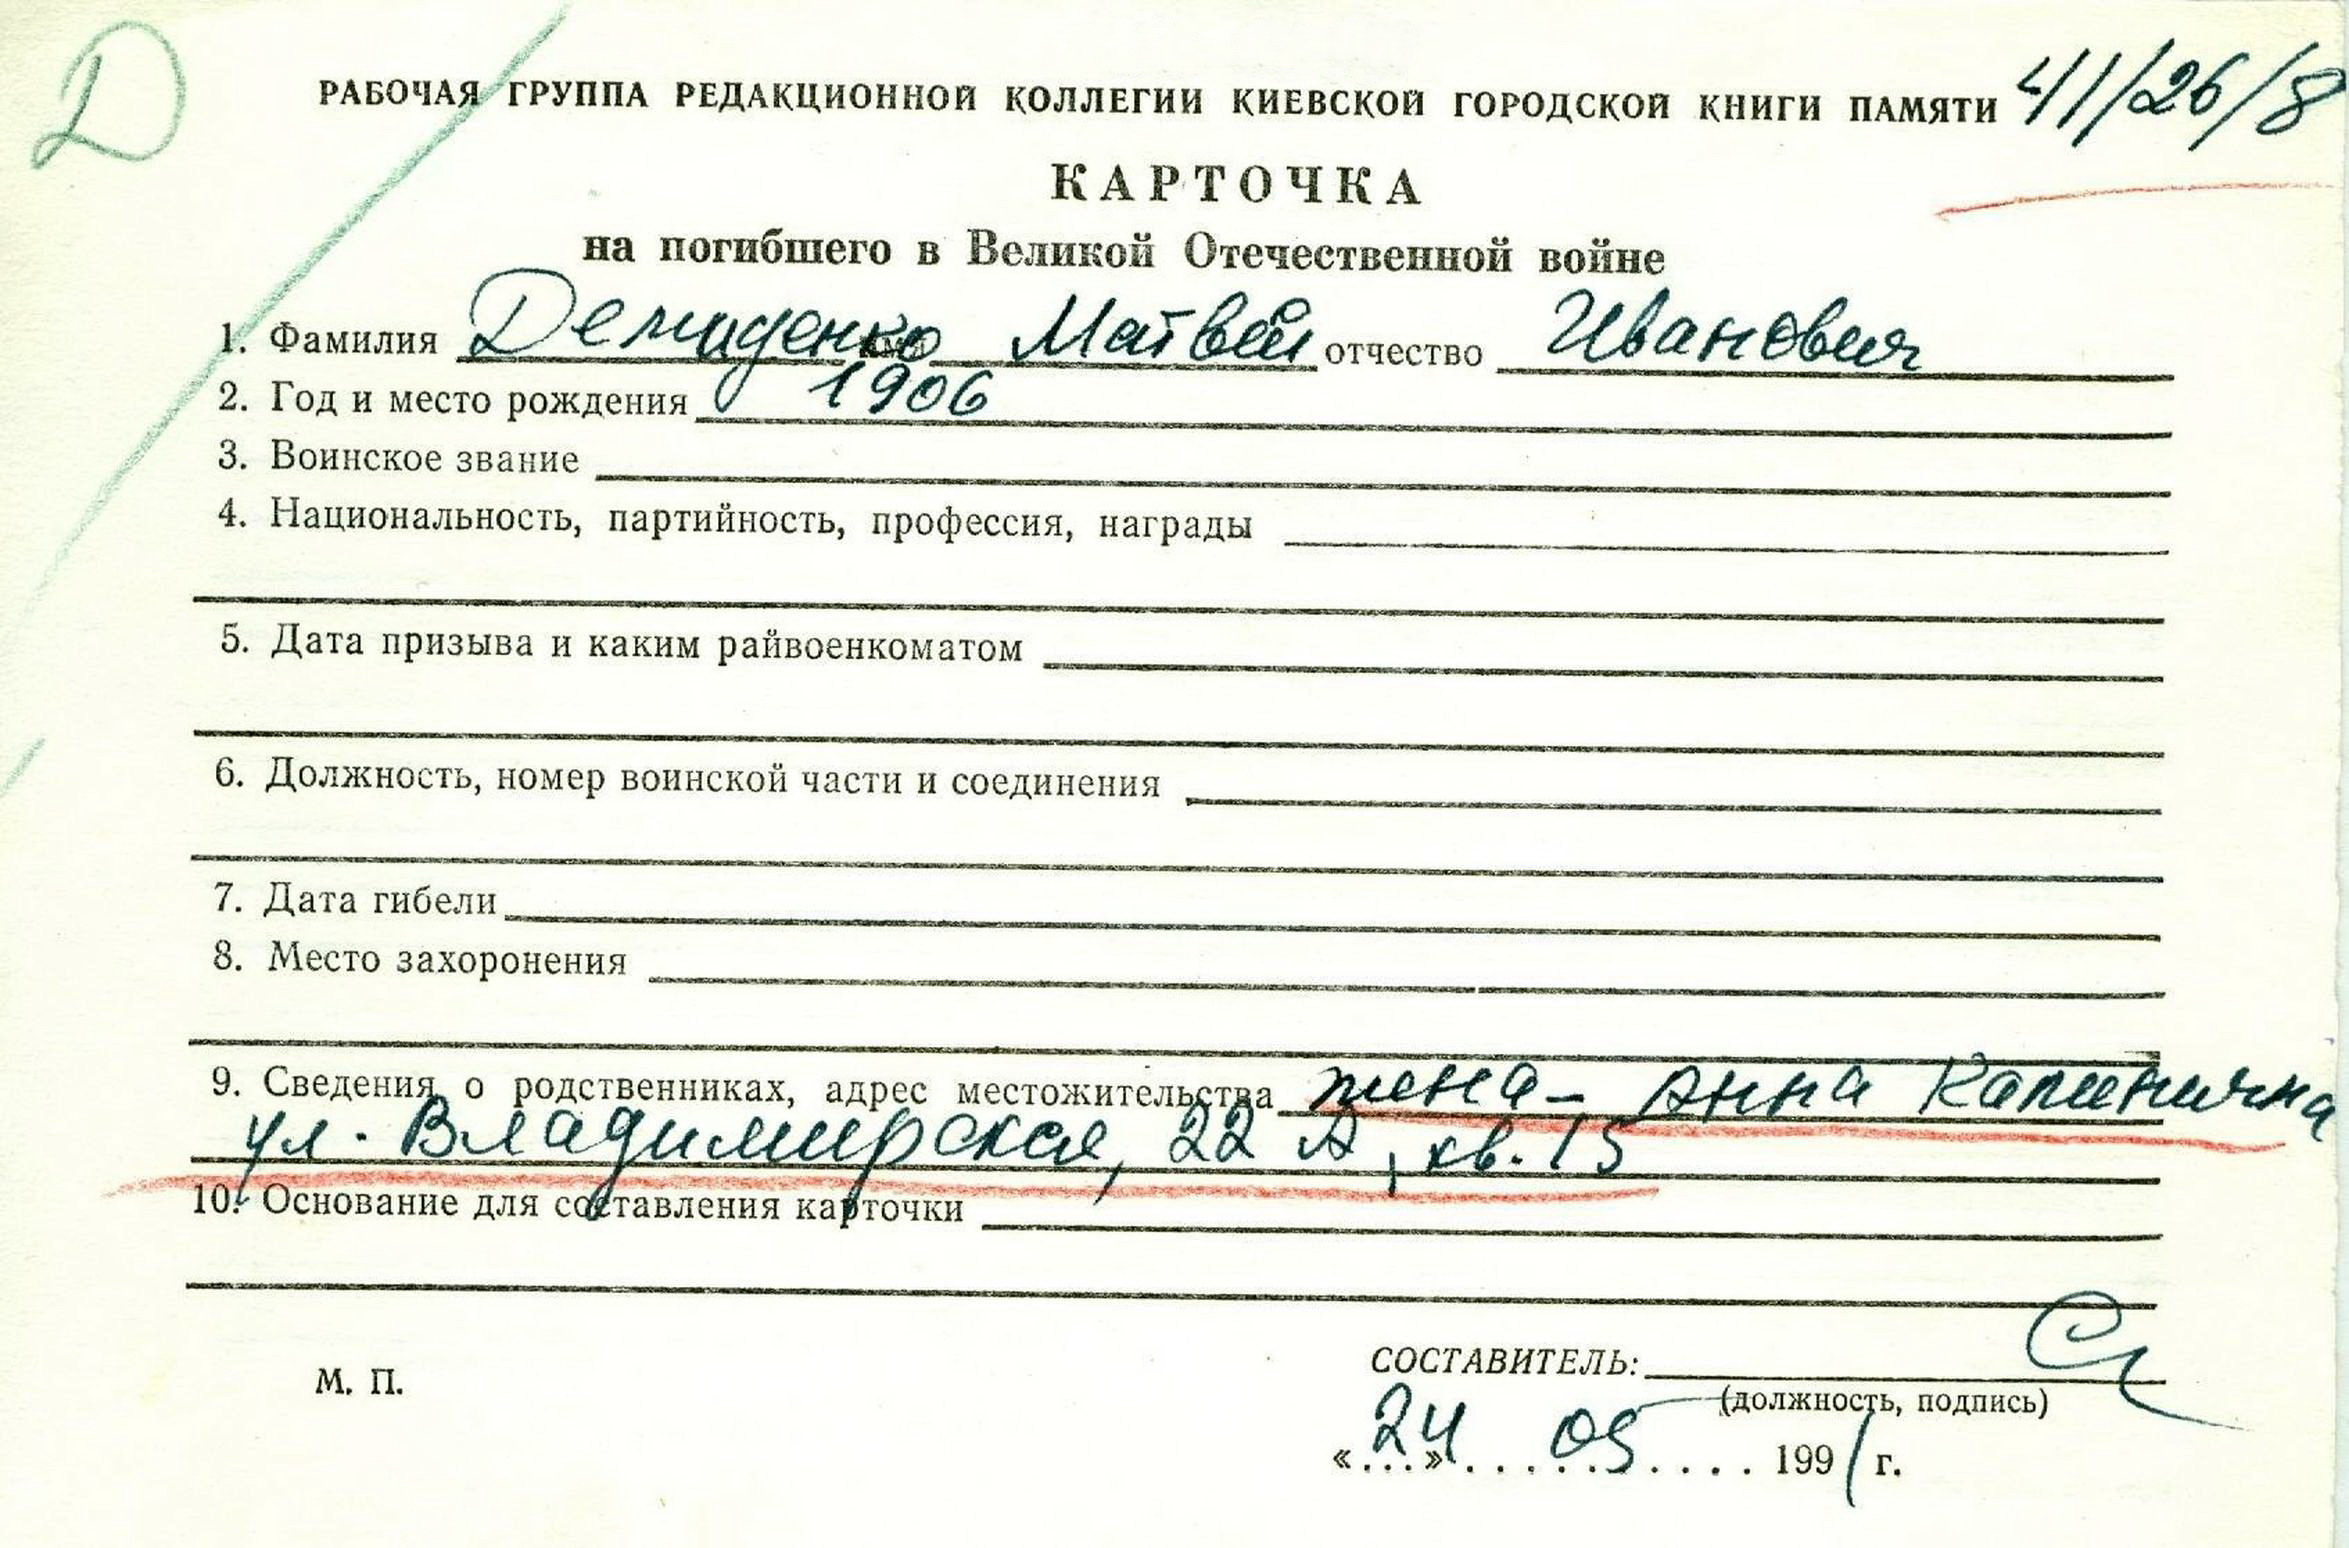 Д
РАБОЧАЯ ГРУППА РЕДАКЦИОННОЙ КОЛЛЕГИИ КИЕВСКОЙ ГОРОДСКОЙ КНИГИ ПАМЯТИ 41/26/8
КАРТОЧКА
на погибшего в Великой Отечественной войне
1. Фамилия Демиденко имя Матвей отчество Иванович
2. Год и место рождения 1906
3. Воинское звание
4. Национальность, партийность, профессия, награды
5. Дата призыва и каким райвоенкоматом
6. Должность, номер воинской части и соединения
7. Дата гибели
8. Место захоронения
9. Сведения о родственниках, адрес местожительства жена - Анна Калинична
ул. Владимирская, 22 А, кв. 15
10. Основание для составления карточки
М. П.
СОСТАВИТЕЛЬ:
(должность, подпись)
«24» 05 1991 г.